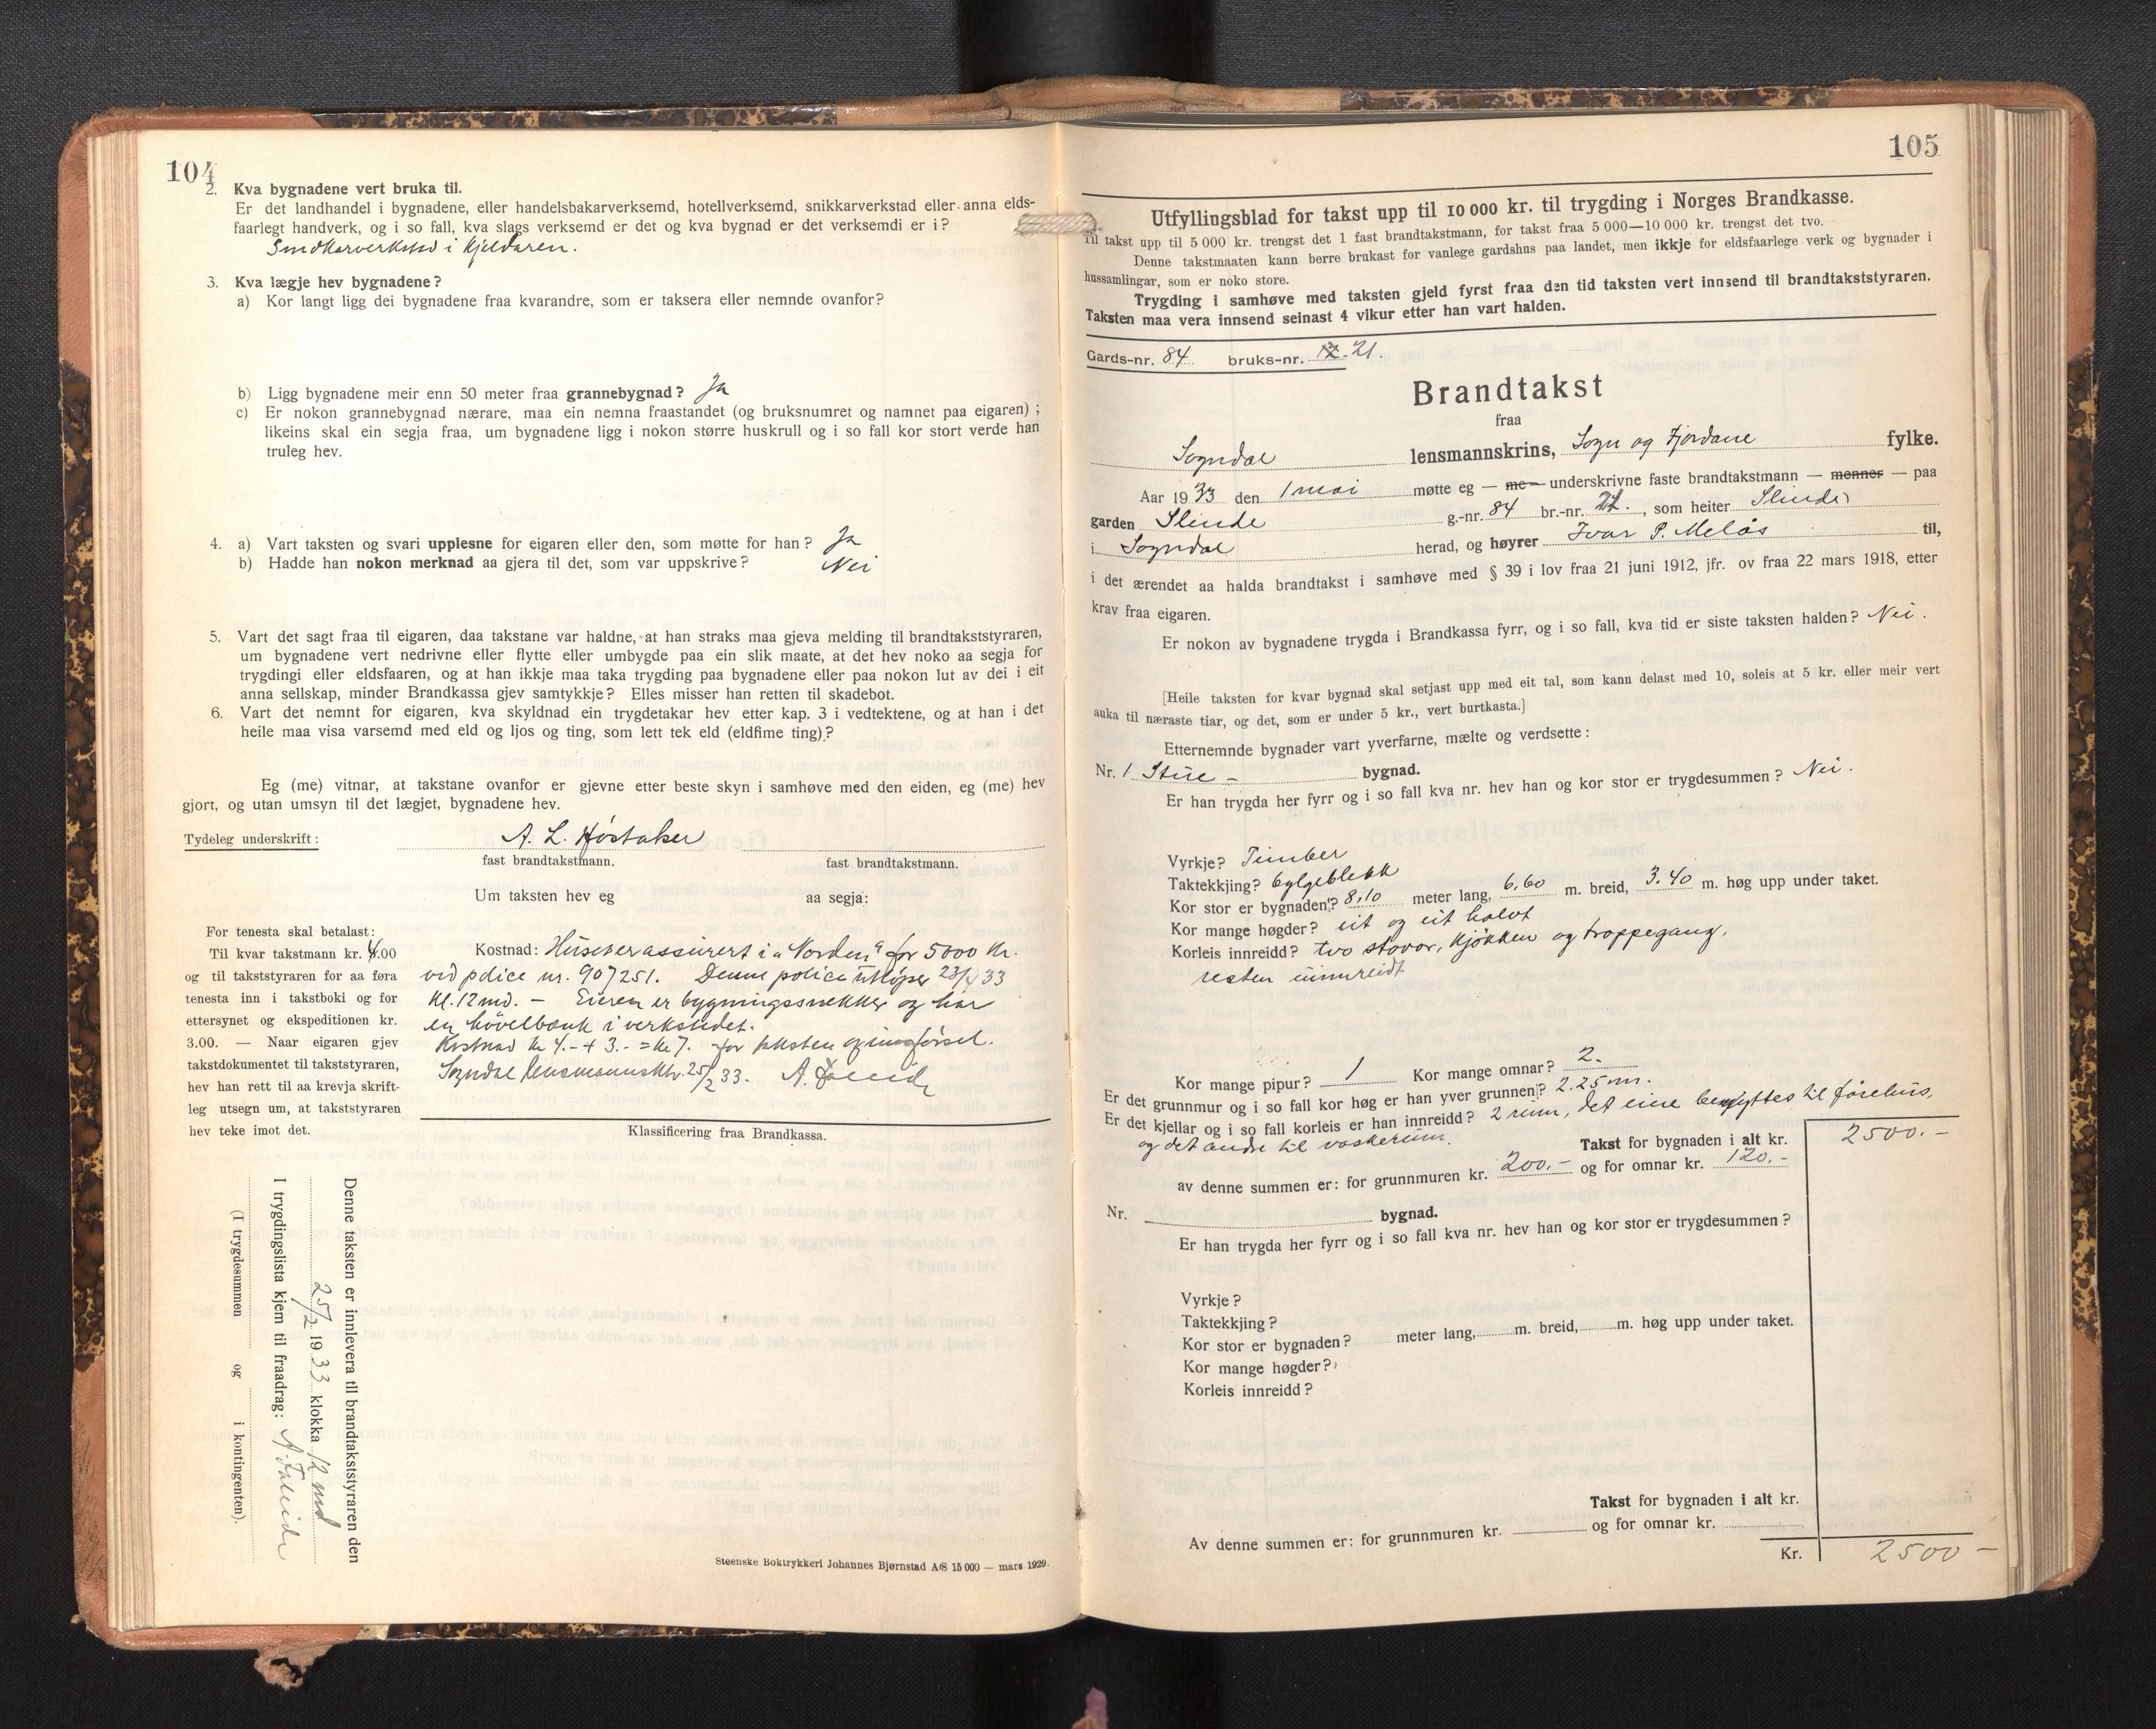 104
2. Kva bygnadene vert bruka til.
Er det landhandel i bygnadene, eller handelsbakarverksemd, hotellverksemd, snikkarverkstad eller anna elds-
faarlegt handverk, og i so fall, kva slags verksemd er det og kva bygnad er det verksemdi er i?
Snidkarverkstad i kjeldaren.
3. Kva lægje hev bygnadene?
a) Kor langt ligg dei bygnadene fraa kvarandre, som er taksera eller nemnde ovanfor?
b) Ligg bygnadene meir enn 50 meter fraa grannebygnad? Ja
c) Er nokon grannebygnad nærare, maa ein nemna fraastandet (og bruksnumret og namnet paa eigaren);
likeins skal ein segja fraa, um bygnadene ligg i nokon større huskrull og i so fall kor stort verde han
truleg hev.
4. a) Vart taksten og svari upplesne for eigaren eller den, som møtte for han? Ja
b) Hadde han nokon merknad aa gjera til det, som var uppskrive? Nei
5. Vart det sagt fraa til eigaren, daa takstane var haldne, at han straks maa gjeva melding til brandtakststyraren,
um bygnadene vert nedrivne eller flytte eller umbygde paa ein slik maate, at det hev noko aa segja for
trygdingi eller eldsfaaren, og at han ikkje maa taka trygding paa bygnadene eller paa nokon lut av dei i eit
anna sellskap, minder Brandkassa gjev samtykkje? Elles misser han retten til skadebot.
6. Vart det nemnt for eigaren, kva skyldnad ein trygdetakar hev etter kap. 3 i vedtektene, og at han i det
heile maa visa varsemd med eld og ljos og ting, som lett tek eld (eldfime ting)?
Eg (me) vitnar, at takstane ovanfor er gjevne etter beste skyn i samhøve med den eiden, eg (me) hev
gjort, og utan umsyn til det lægjet, bygnadene hev.
Tydeleg underskrift: A. L. Høstaker
fast brandtakstmann. fast brandtakstmann.
Um taksten hev eg aa segja:
For tenesta skal betalast:
Til kvar takstmann kr. 4.00
og til takststyraren for aa føra
tenesta inn i takstboki og for
ettersynet og ekspeditionen kr.
3.00. — Naar eigaren gjev
takstdokumentet til takststyraren,
hev han rett til aa krevja skrift-
leg utsegn um, at takststyraren
hev teke imot det.
Kostnad: Huset er assurert i "Norden" for 5000 kr.
ved police nr. 907251. Denne police utløper 23/4 33
kl. 12 md. — Eieren er bygningssnekker og har
en høvelbænk i verkstedet.
Kostnad kr 4.- + 3.- = kr 7. for taksten og innførsel.
Sogndal lensmannsktr. 25/2 33. A. Faleide
Klassificering fraa Brandkassa.
Denne taksten er innlevera til brandtakststyraren den
25/2 1933 klokka 12 md
I trygdingslista kjem til fraadrag: A Faleide
(I trygdesummen og i kontingenten).
Steenske Boktrykkeri Johannes Bjørnstad A/S 15 000 — mars 1929.
105
Utfyllingsblad for takst upp til 10 000 kr. til trygding i Norges Brandkasse.
Til takst upp til 5 000 kr. trengst det 1 fast brandtakstmann, for takst fraa 5 000—10 000 kr. trengst det tvo.
Denne takstmaaten kann berre brukast for vanlege gardshus paa landet, men ikkje for eldsfaarlege verk og bygnader i
hussamlingar, som er noko store.
Trygding i samhøve med taksten gjeld fyrst fraa den tid taksten vert innsend til brandtakststyraren.
Taksten maa vera innsend seinast 4 vikur etter han vart halden.
Gards-nr. 84 bruks-nr. 21.
Brandtakst
fraa
Sogndal lensmannskrins, Sogn og Fjordane fylke.
Aar 1933 den 1 mai møtte eg — me — underskrivne faste brandtakstmann — menner — paa
garden Slinde g.-nr. 84 br.-nr. 21., som heiter Slinde
i Sogndal herad, og høyrer Ivar P. Melås til,
i det ærendet aa halda brandtakst i samhøve med § 39 i lov fraa 21 juni 1912, jfr. ov fraa 22 mars 1918, etter
krav fraa eigaren.
Er nokon av bygnadene trygda i Brandkassa fyrr, og i so fall, kva tid er siste taksten halden? Nei.
[Heile taksten for kvar bygnad skal setjast upp med eit tal, som kann delast med 10, soleis at 5 kr. eller meir vert
auka til næraste tiar, og det, som er under 5 kr., vert burtkasta.]
Etternemnde bygnader vart yverfarne, mælte og verdsette:
Nr. 1 Stue - bygnad.
Er han trygda her fyrr og i so fall kva nr. hev han og kor stor er trygdesummen? Nei.
Vyrkje? Timber
Taktekkjing? bylgeblekk
Kor stor er bygnaden? 8,10 meter lang, 6,60 m. breid, 3.40 m. høg upp under taket.
Kor mange høgder? eit og eit halvt
Korleis innreidd? tvo stovor, kjøkken og troppegang,
resten uinnreidt
Kor mange pipur? 1 Kor mange omnar? 2.
Er det grunnmur og i so fall kor høg er han yver grunnen? 2.25 m.
Er det kjellar og i so fall korleis er han innreidd? 2 rum, det eine benyttes til förehus,
og det andre til vaskerum.
Takst for bygnaden i alt kr. 2500.-
av denne summen er: for grunnmuren kr. 200.- og for omnar kr. 120.-
Nr. bygnad.
Er han trygda her fyrr og i so fall kva nr. hev han og kor stor er trygdesummen?
Vyrkje?
Taktekkjing?
Kor stor er bygnaden? meter lang, m. breid, m. høg upp under taket.
Kor mange høgder?
Korleis innreidd?
Takst for bygnaden i alt kr.
Av denne summen er: for grunnmuren kr. og for omnar kr.
Kr. 2500 -